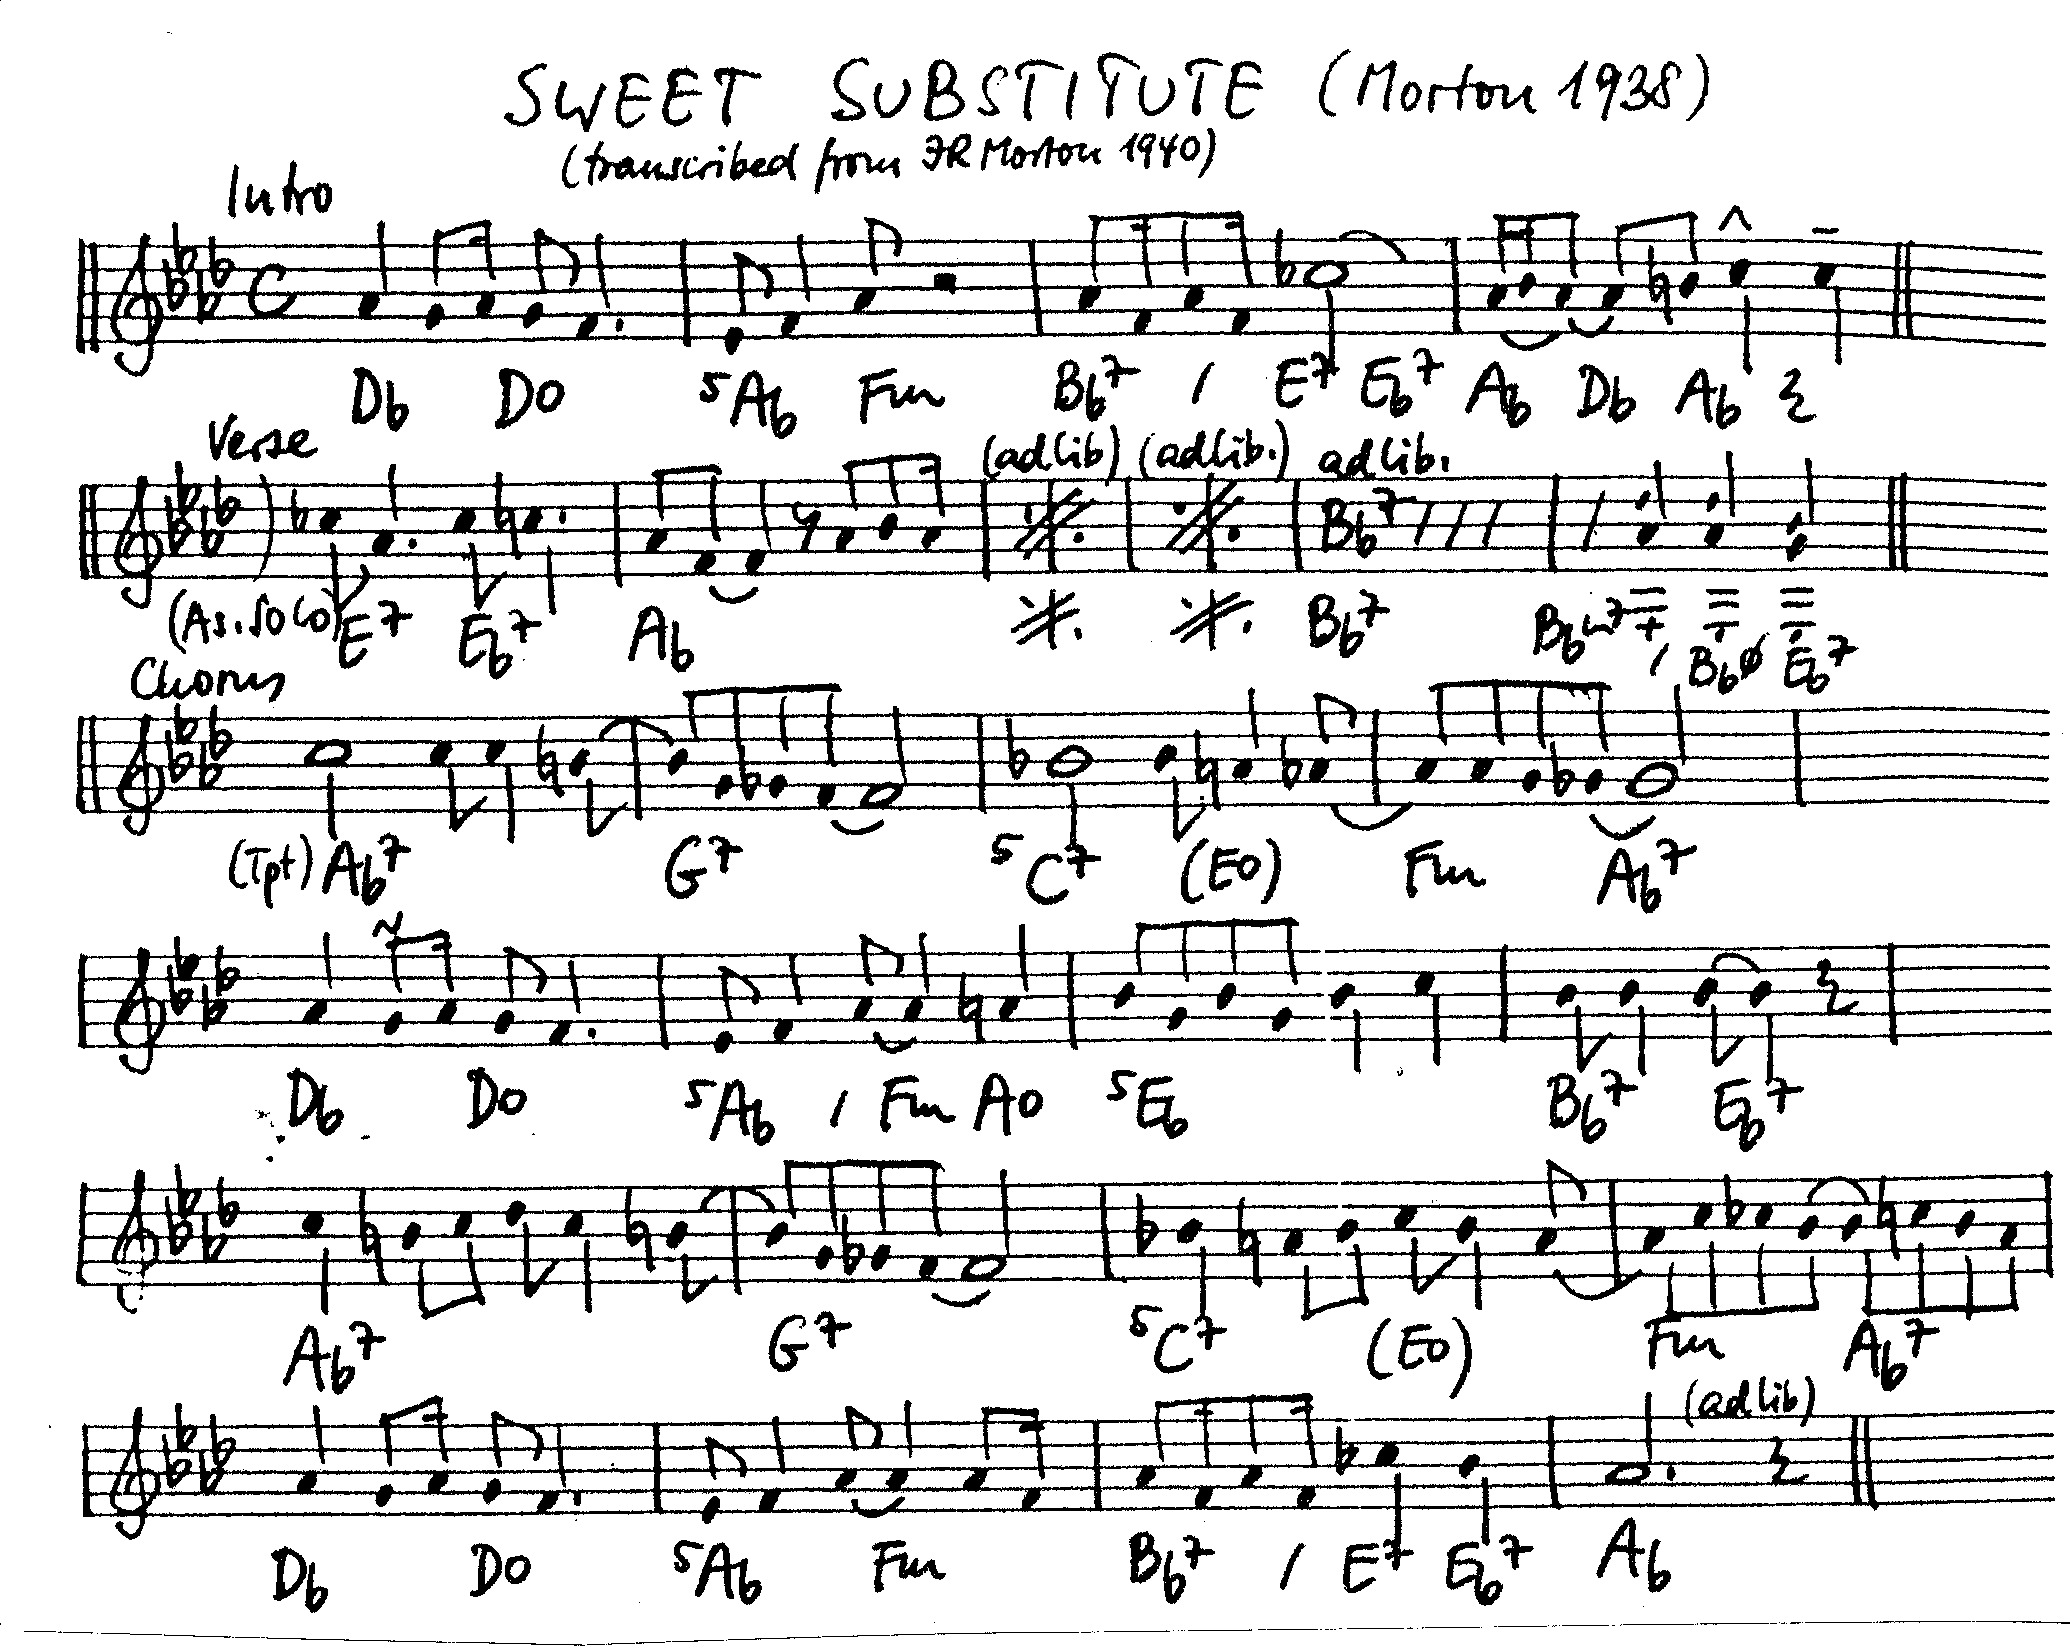 SWEET SUBSTITUTE (Morton 1938)
(transcribed from JR Morton 1940)
Intro
Db Do 5Ab Fm Bb7 / E7 Eb7 Ab Db Ab
Verse (ad lib) (ad lib.) ad lib.
Bb7 / / / /
(As. solo) E7 Eb7 Ab Bb7 Bbm7 / Bbø Eb7
Chorus
(Tpt) Ab7 G7 5C7 (Eo) Fm Ab7
Db Do 5Ab / Fm Ao 5Eb Bb7 Eb7
Ab7 G7 5C7 (Eo) Fm Ab7
(ad lib)
Db Do 5Ab Fm Bb7 / E7 Eb7 Ab